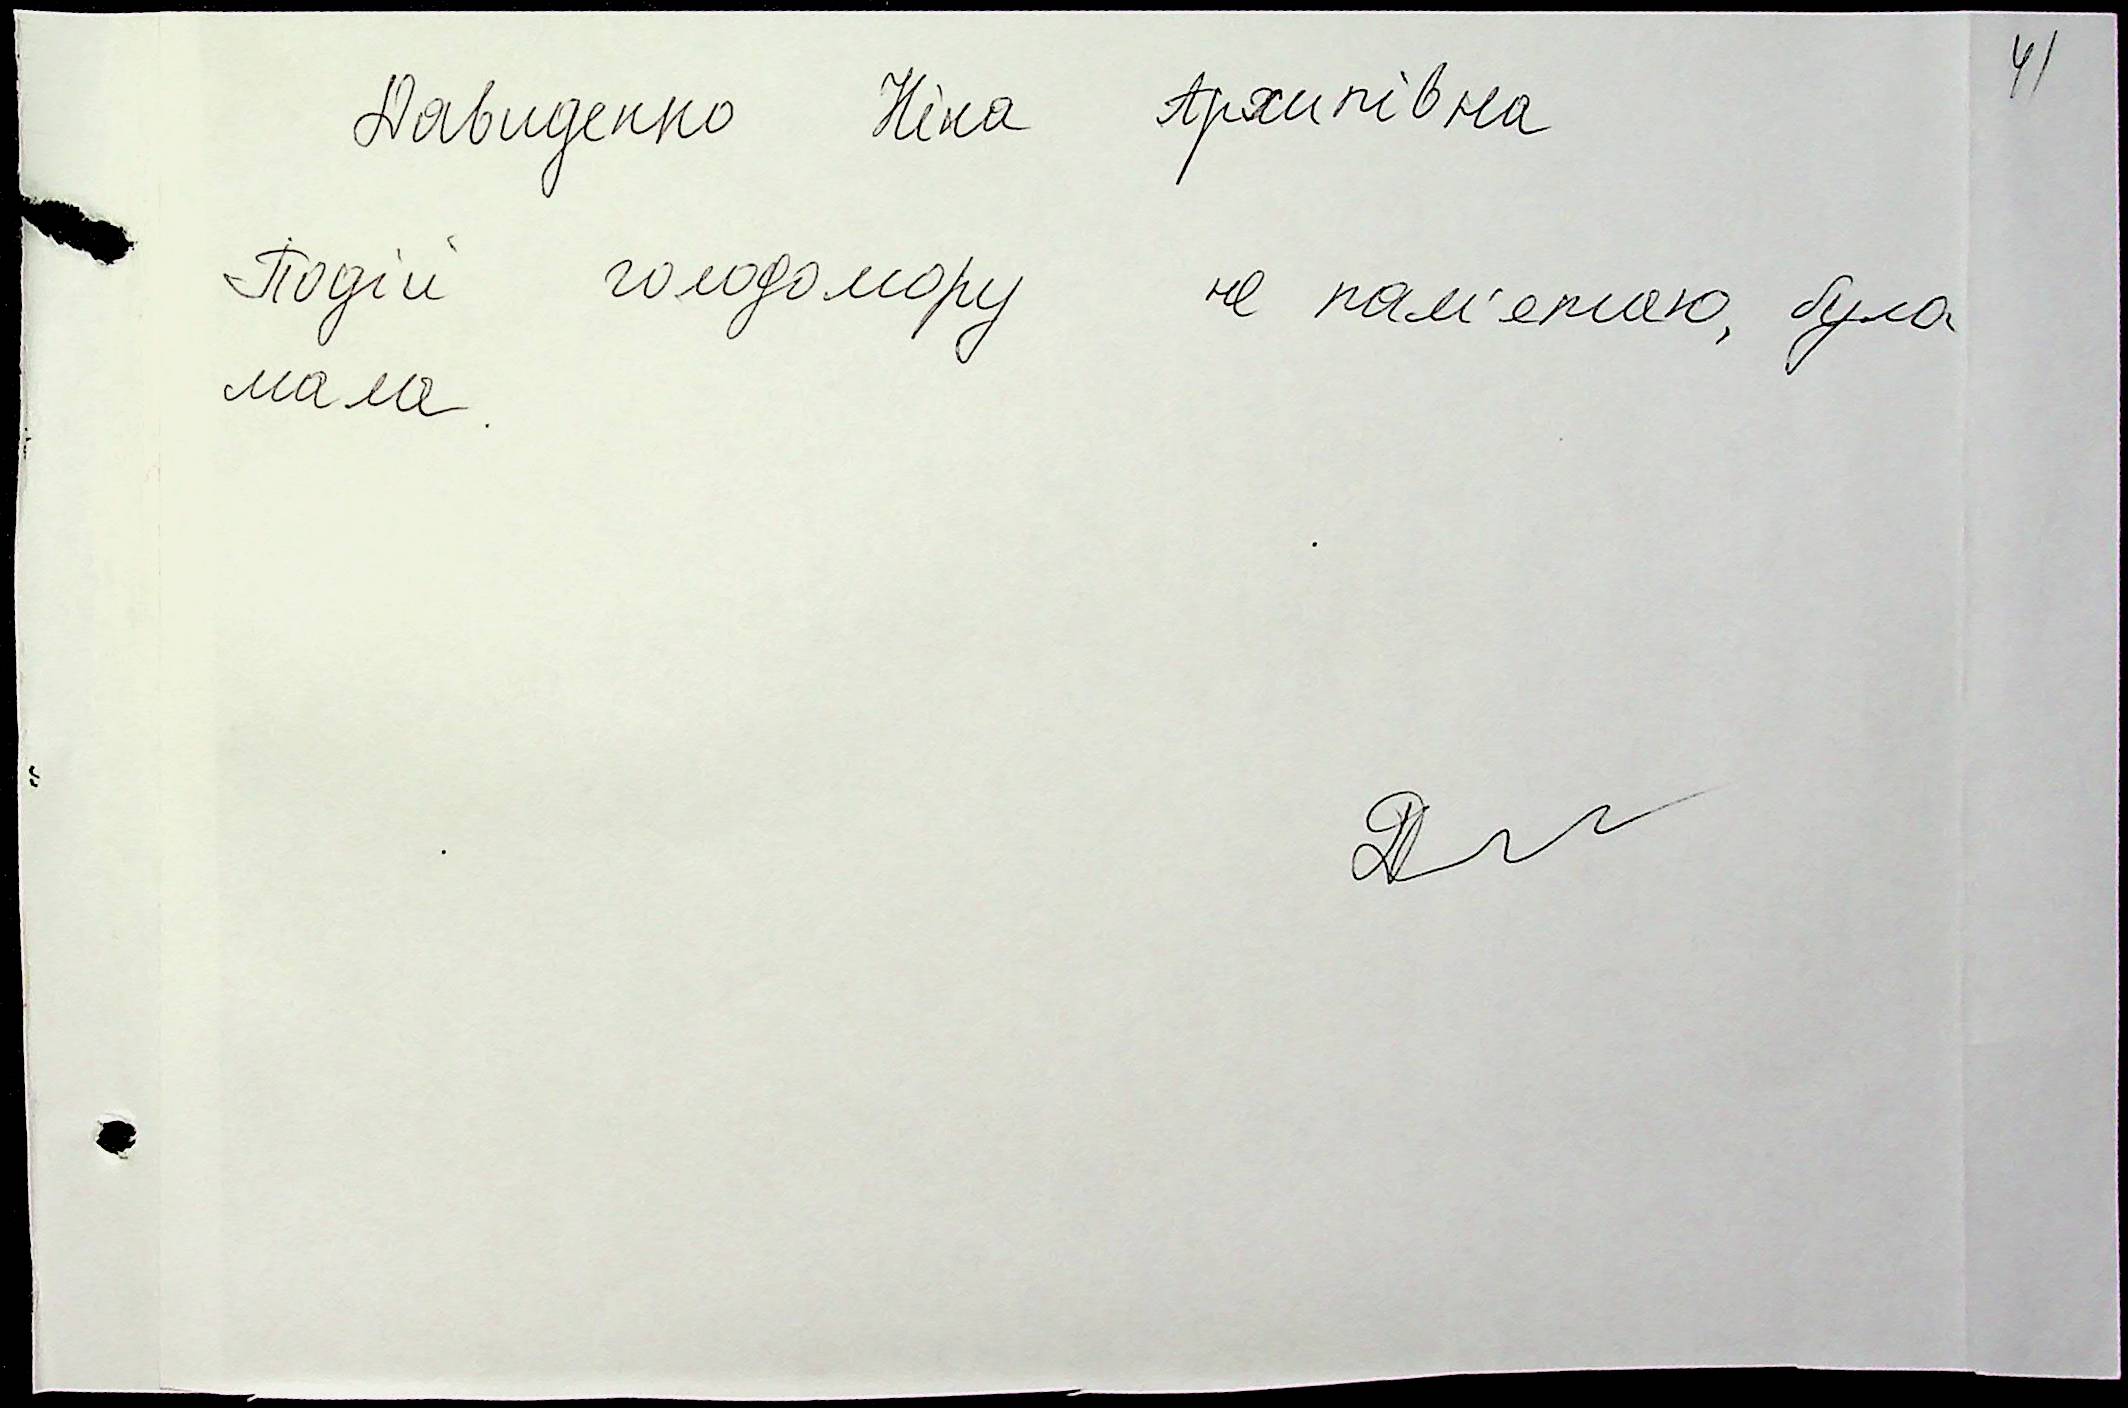 41
Давиденко Ніна Архипівна
Подій голодомору не пам'ятаю, була
мала.